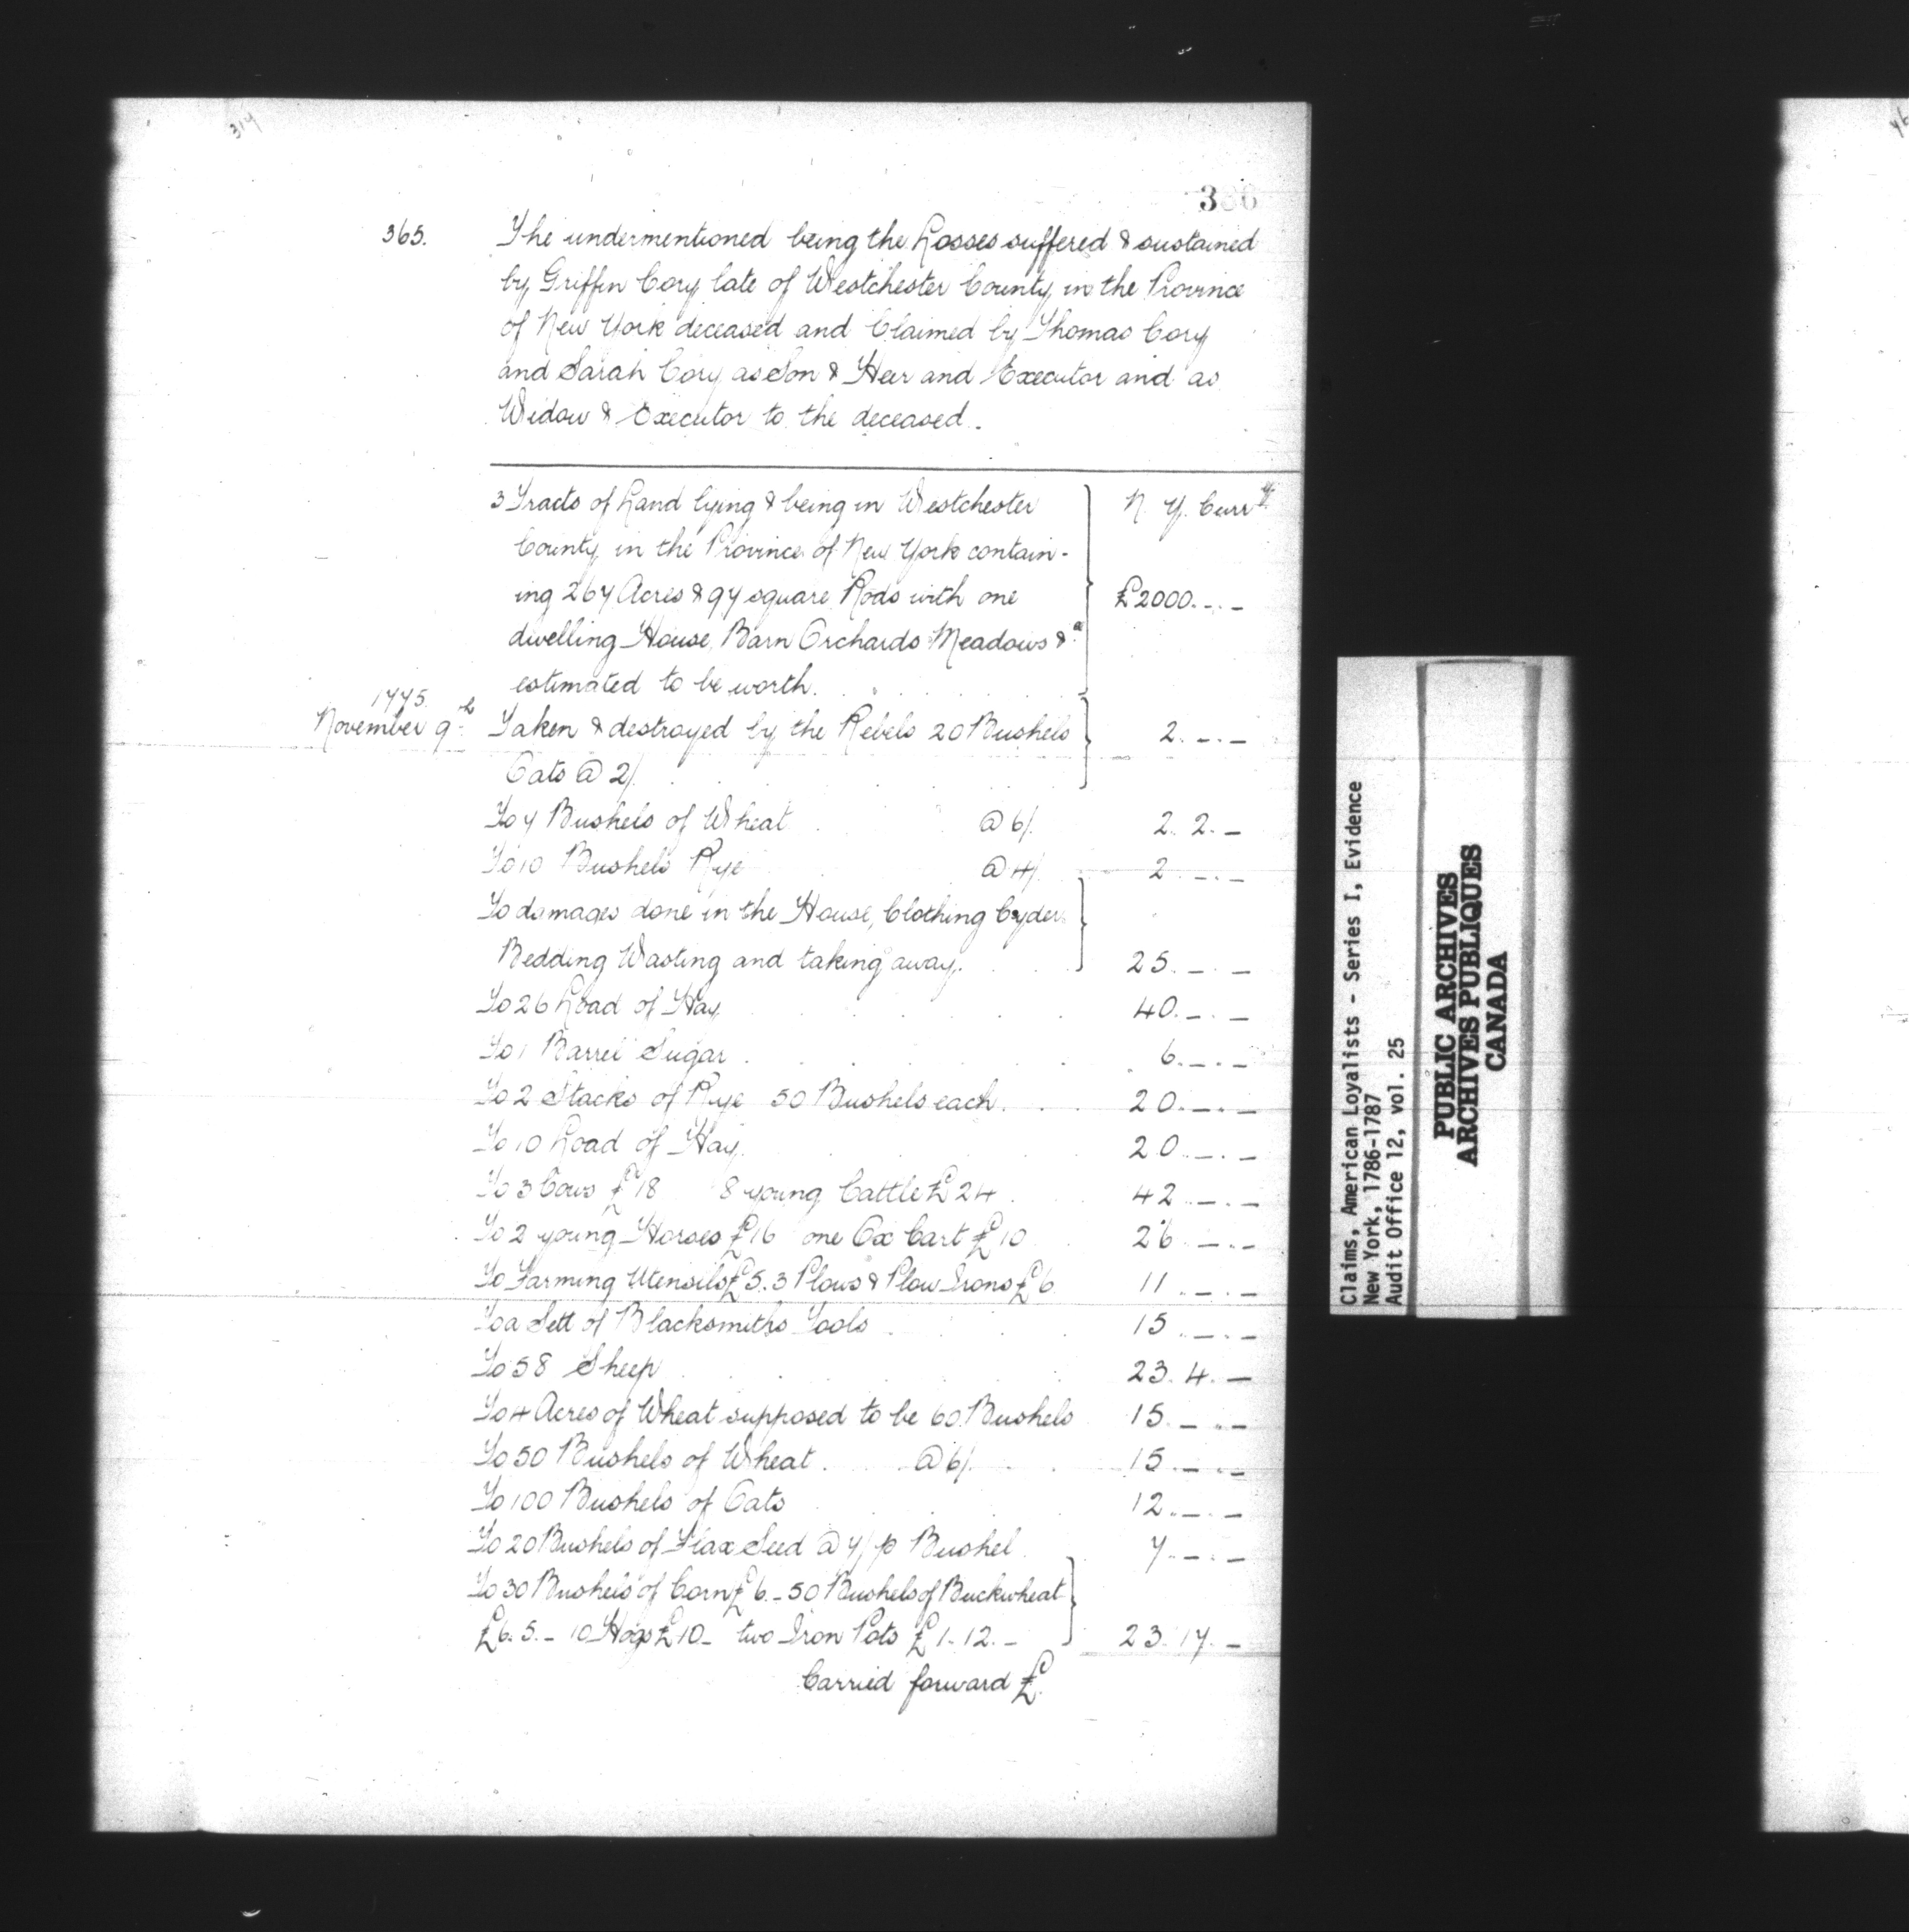 314
336
365.
The undermentioned being the Losses suffered & sustained
by Griffin Cory late of Westchester County in the Province
of New York deceased and Claimed by Thomas Cory
and Sarah Cory as Son & Heir and Executor and as
Widow & Executor to the deceased.
3 Tracts of Land lying & being in Westchester
N. Y. Curr.y
County in the Province of New York contain-
ing 267 Acres & 97 square Rods with one
£2000.-.-
dwelling House, Barn Orchards Meadows &a
estimated to be worth.
1775.
November 9th
Taken & destroyed by the Rebels 20 Bushels
2.-.-
Oats @ 2/.
To 7 Bushels of Wheat @ 6/. 2. 2. -
To 10 Bushels Rye @ 4/. 2.-.-
To damages done in the House, Clothing Cyder
Bedding Wasting and taking away. 25.-.-
To 26 Load of Hay 40.-.-
To 1 Barrel Sugar 6.-.-
To 2 Stacks of Rye 50 Bushels each. 20.-.-
To 10 Load of Hay. 20.-.-
To 3 Cows £18 8 young Cattle £24 42.-.-
To 2 young Horses £16 one Ox Cart £10 26.-.-
To Farming Utensils £5. 3 Plows & Plow Irons £6 11.-.-
To a Sett of Blacksmiths Tools 15.-.-
To 58 Sheep 23. 4. -
To 4 Acres of Wheat supposed to be 60 Bushels 15.-.-
To 50 Bushels of Wheat. @ 6/. 15.-.-
To 100 Bushels of Oats 12.-.-
To 20 Bushels of Flax Seed @ 7/ p Bushel 7.-.-
To 30 Bushels of Corn £6.- 50 Bushels of Buckwheat
£6. 5.- 10 Hogs £10- two Iron Pots £1.12.- 23. 17. -
Carried forward £
Claims, American Loyalists - Series I, Evidence
New York, 1786-1787
Audit Office 12, vol. 25
PUBLIC ARCHIVES
ARCHIVES PUBLIQUES
CANADA